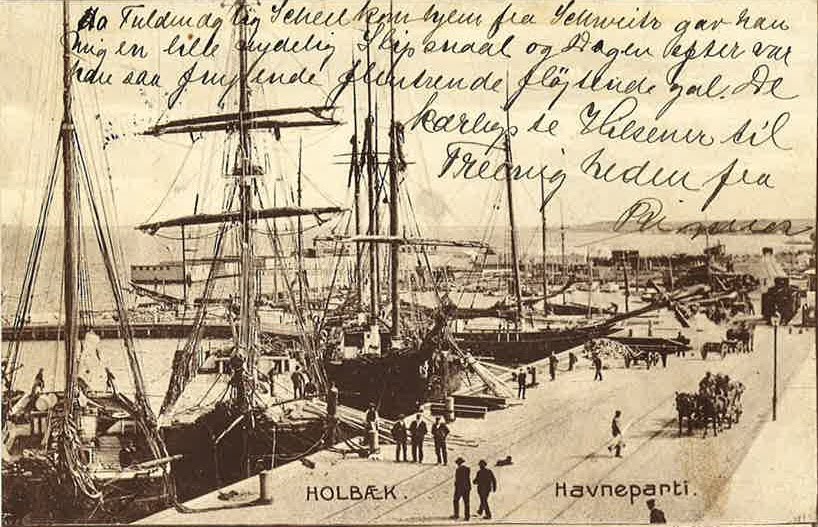 da Fuldmægtig Scheel kom hjem fra Schweitz gav han
mig en lille nydelig Slipsnaal og Dagen efter var
han saa frygtende fløjtende gal. De
kærligste Hilsener til
heden fra
HOLBÆK.
Havneparti.